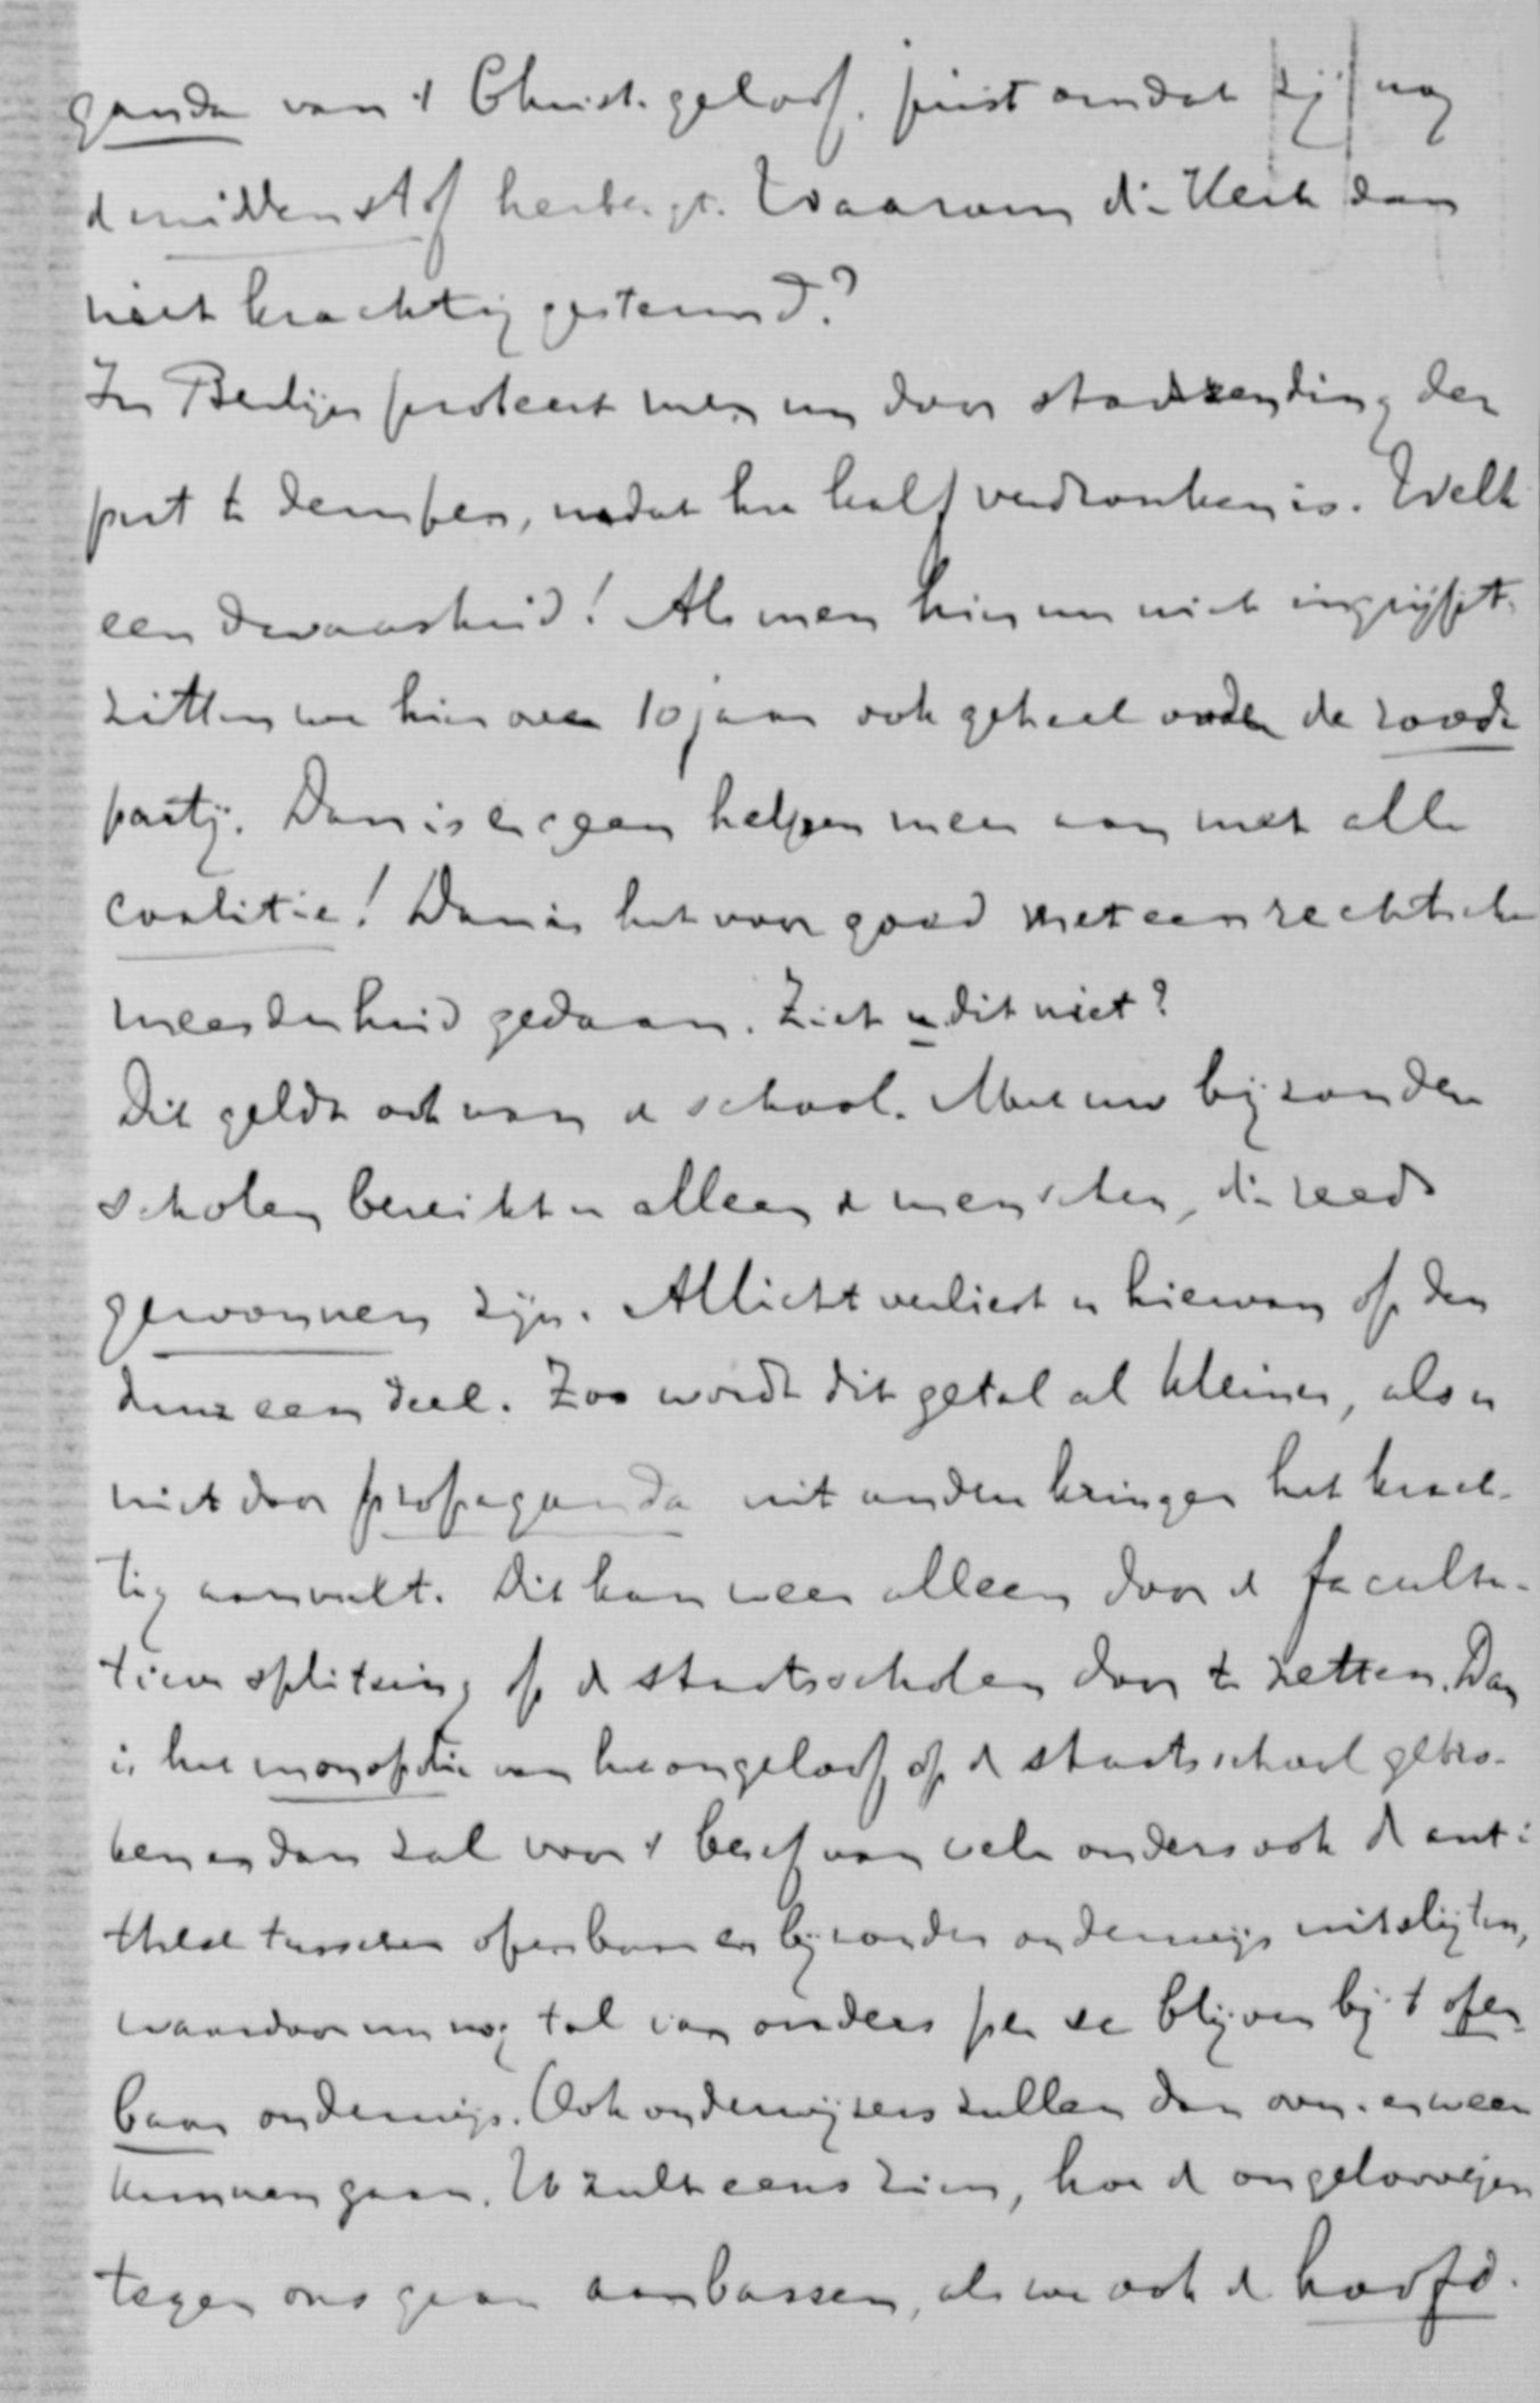 ganda van 't Christ. geloof, juist omdat zij nog
de middenstof herbergt. Waarom die Kerk dan
niet krachtig gesteund?
In Berlijn probeert men nu door stadszending den
put te dempen, nadat het kalf verdronken is. Welk
een dwaasheid! Als men hier nu niet ingrijpt.
zitten we hier over 10 jaar ook geheel onder de roode
partij. Dan is er geen helpen meer aan met alle
coalitie! Dan is het voor goed met een rechtsche
meerderheid gedaan. Ziet u dit niet?
Dit geldt ook van de school. Met uw bijzondere
scholen bereikt u alleen de menschen, die reeds
gewonnen zijn. Allicht verliest u hiervan op den
duur een deel. Zoo wordt dit getal al kleiner, als u
niet door propaganda uit andere kringen het krach-
tig aanvult. Dit kan weer alleen door de faculta-
tieve splitsing op de staatsscholen door te zetten. Dan
is het monopolie van het ongeloof op de staatsschool gebro-
ken en dan zal voor 't besef van vele ouders ook de anti-
these tusschen openbaar en bijzonder onderwijs uitslijten,
waardoor nu nog tal van ouders per se blijven bij 't open-
baar onderwijs. Ook onderwijzers zullen dan over en weer
kunnen gaan. U zult eens zien, hoe de ongeloovigen
tegen ons gaan aanbassen, als we ook de hoofd-